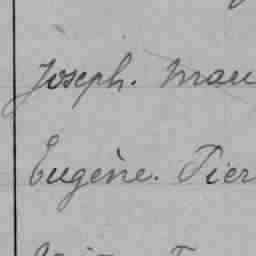 Joseph. Mau
Eugène. Pier